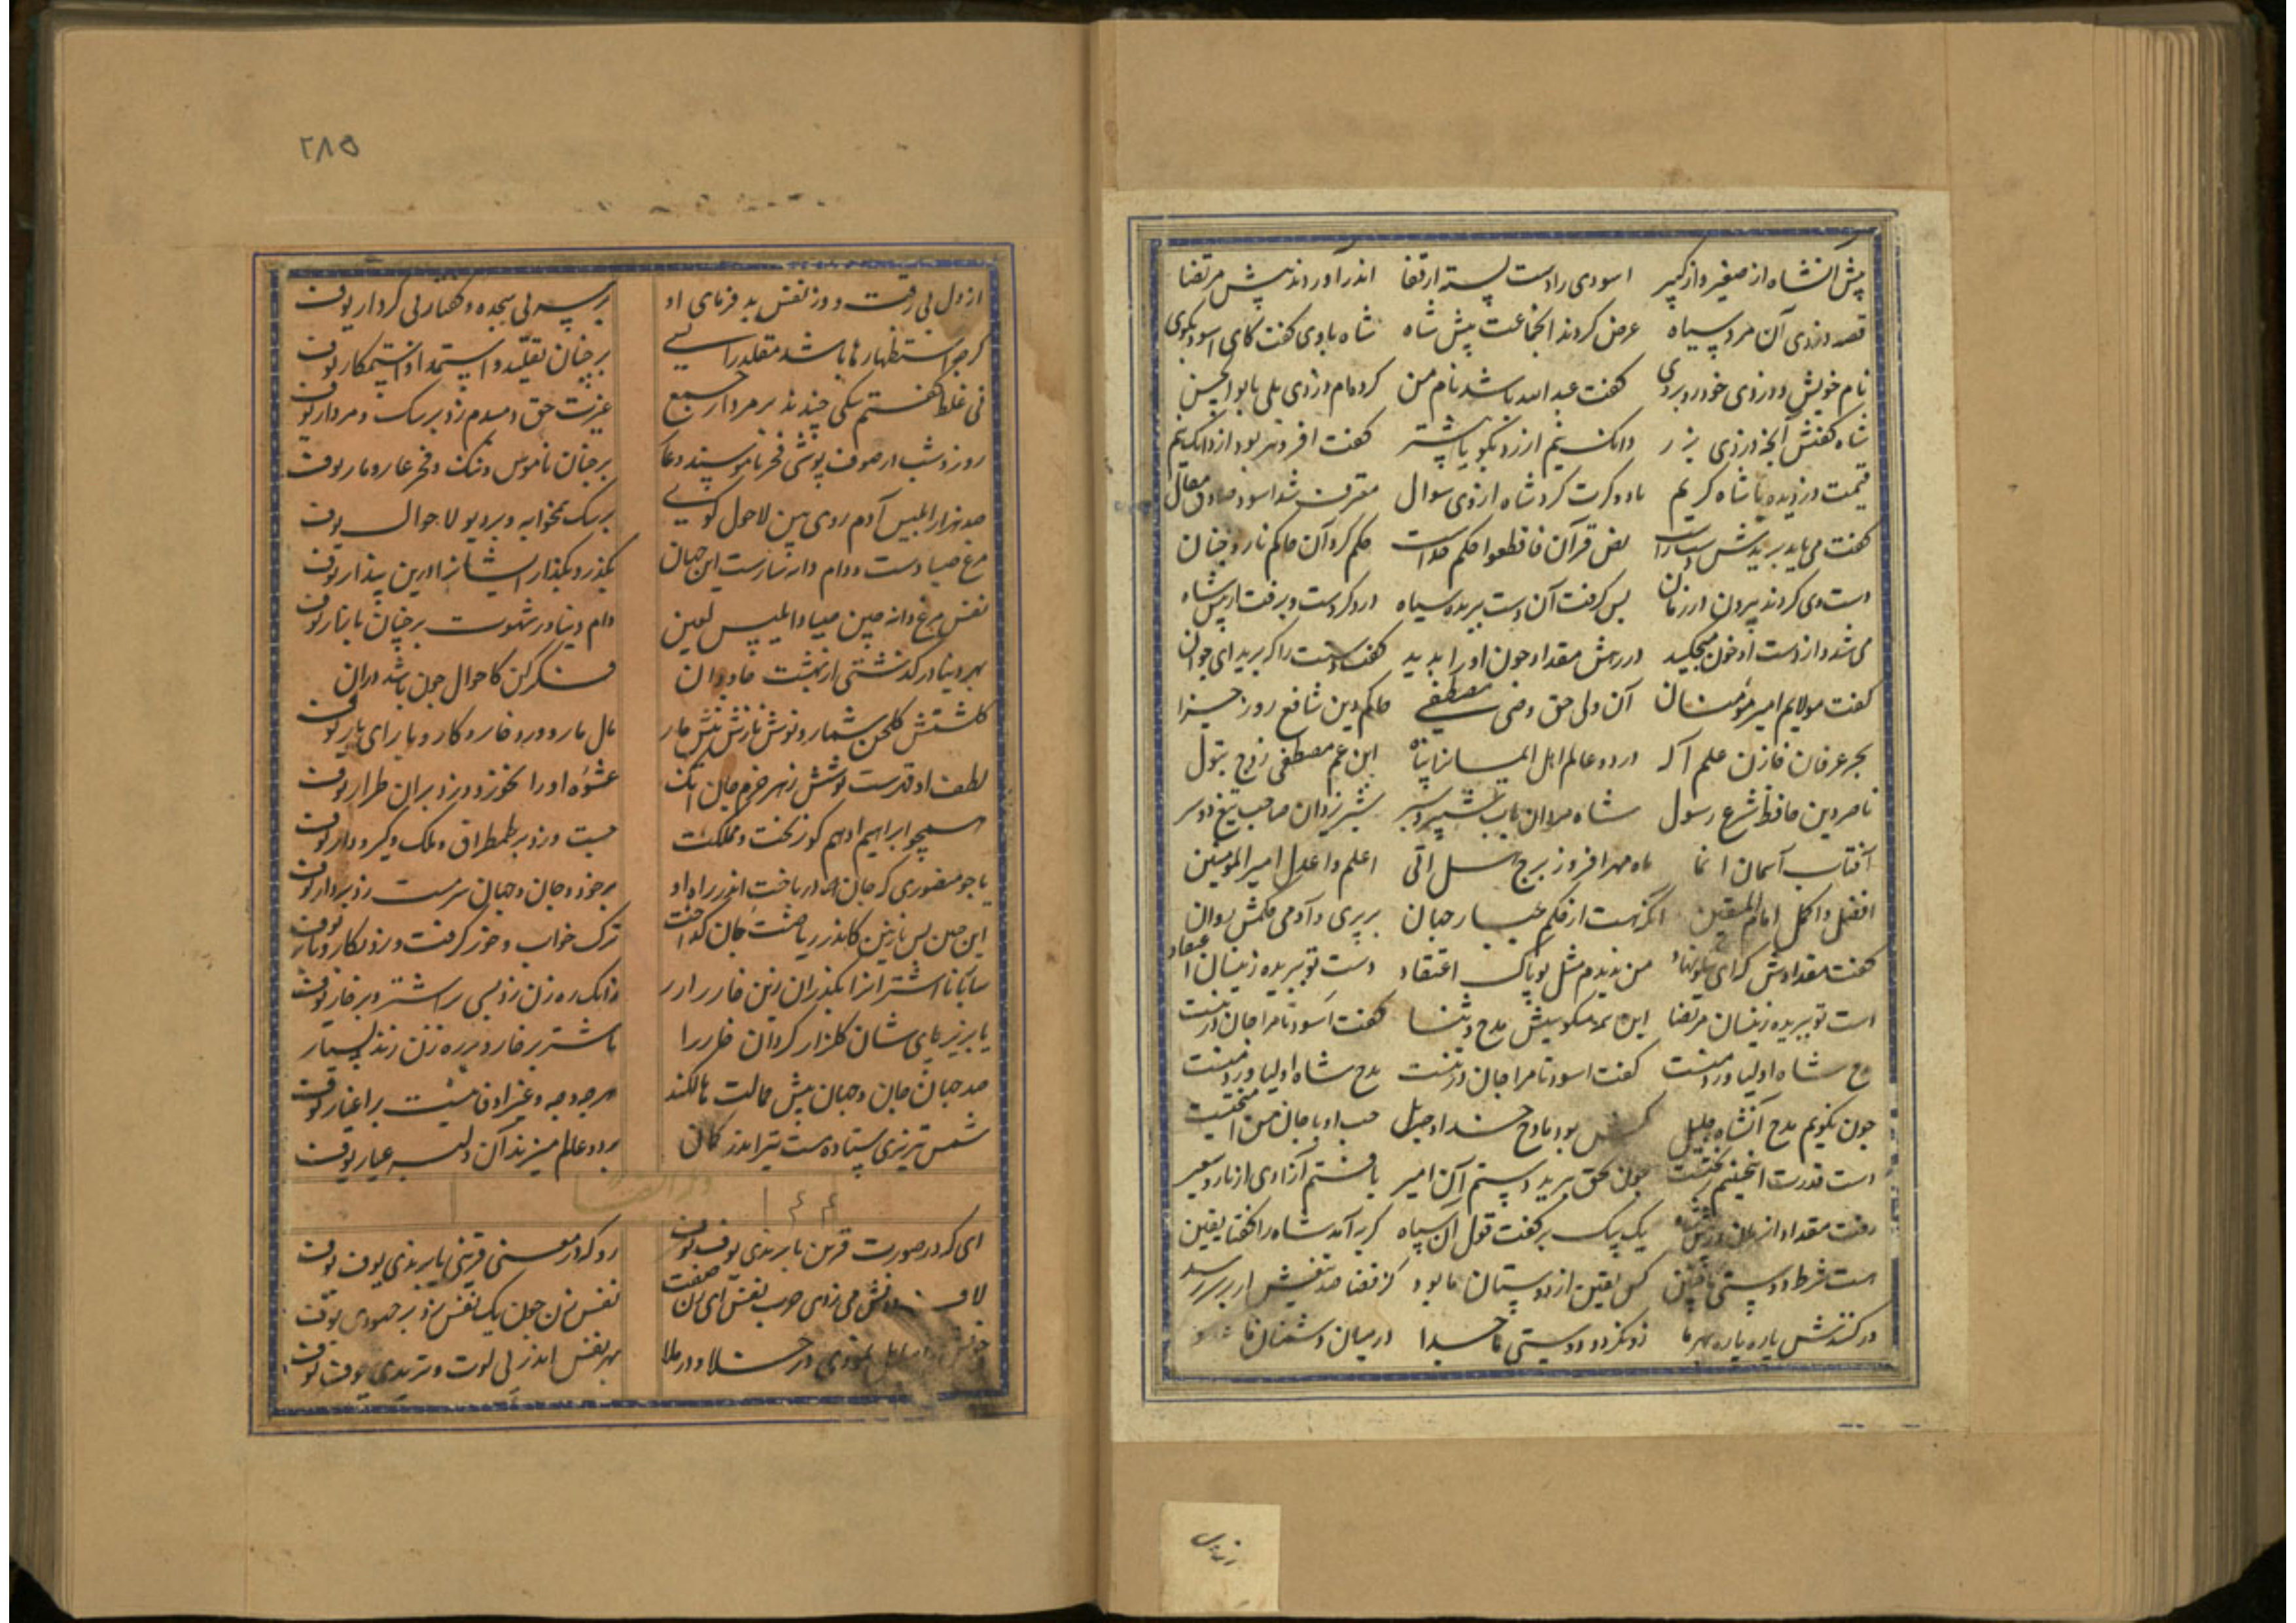 پیش آنشاه از صغیر و از کبیر اسودی را دست بسته از قفا اندر آوردند پیش مرتضا
قصه دزدی آن مرد سیاه عرض کردند انجماعت پیش شاه شاه با وی گفت کای اسود بگوی
نام خویش و دزدی خود روبروی گفت عبد الله باشد نام من کرده‌ام دزدی بلی یا بوالحسن
شاه گفتش آنچه دزدی دانک نیم ارزد بگو یا بیشتر گفت افزونتر بود از دانک نیم
قیمت دزدیده یا شاه کریم تا دو کرت کرد شاه از وی سوال معترف شد اسود صادق مقال
گفت می باید بریدش دست راست نص قرآن فاقطعوا حکم خداست حکم کرد آن حاکم نار و جنان
دست وی کردند بیرون در زمان بس گرفت آن دست بریده سیاه رو کرد و برفت از پیش شاه
می شد و از دست او خون میچکید در رهش مقداد چون او را بدید گفت دستت را که برید ای جوان
گفت مولایم امیر مؤمنان آن ولی حق وصی مصطفی حاکم دین شافع روز جزا
بحر عرفان خازن علم آله در دو عالم اهل ایمانرا پناه ابن عم مصطفی زوج بتول
ناصر دین حافظ شرع رسول شاه مردان باب شبیر و شبر شیر یزدان صاحب تیغ دو سر
آفتاب آسمان انما ماه مهر افروز برج هل اتی اعلم و اعدل امیر المومنین
افضل و اکمل امام المتقین انکه هست از حکم جبار جهان بر پری و آدمی حکمش روان
گفت مقدادش که ای من ندیدم مثل تو پاک اعتقاد دست تو ببریده زینسان
است تو ببریده زینسان مرتضا این همه میگوییش مدح و ثنا گفت اسود تا مرا جان در تنست
مدح شاه اولیا ورد منست گفت اسود تا مرا جان در تنست مدح شاه اولیا ورد منست
چون نگویم مدح آنشاه جلیل بود مادح خداوند حب او با جان من
است قدرت چون بحق ببرید دستم آن امیر یافتم آزادی از نار و سعیر
رفت مقداد یک بیک بر گفت قول آن سیاه کریه آمد شاه را گفتا یقین
هست شرط دوستی کس یقین از دوستان ما بود کز قضا صد تیغش ار بر سر رسد
ور کنندش پاره پاره بهر ما زو نگردد دوستی ما جدا در میان دشمنان ما
۲۸۵
از دل بی رقت و وز نفس بد فرمای او بر سر بی سجده و گفتار بی کردار توف
گر جو استظهارها باشد مقلد را بسی بر چنان تقلید و استمداد و استمکار توف
نی غلط گفتم سکی چندند بر مردار جمع عزت حق دمبدم زد بر سک و مردار توف
روز و شب در صوف پوشی فخر ناموسند و عار بر چنان ناموس و ننک و فخر عار و مار توف
صد هزار ابلیس آدم روی بین لاحول گوی بر سک همخوابه و بر دیو لاحوال توف
مرغ صیادست و دام و دانه این جهان بگذر و بگذار ایشانرا درین پندار توف
نفس مرغ دانه چین صیاد ابلیس لعین دام دنیا در شهوت بر چنان
بهر دنیا در گذشتی از بهشت جاودان فکر کن کاحوال چون باشد در آن
گلشنش گلخن شمار و نوش نازش نیش مار مال مار و ورد خار و کار و بار ای یار توف
لطف او قهرست نوشش زهر خرم جان آنک عشوه او را نخورد و زد بران طرار توف
همچو ابراهیم ادهم کو ز تخت و مملکت جست و زد بر طمطراق و ملک و گیر و دار توف
یا چو منصوری که جان در باخت اندر راه او بر خود و جان و جهان سرمست زد بر دار توف
این چنین بس نازنین کاندر ریاضت جان گداخت ترک خواب و خور گرفت و زد بکار و بار توف
ساربانا اشترانرا بگذران زین خار زار زانک ره زن زد بسی بر اشتر و بر خار توف
یا بریز پای شان گلزار گردان خار را یا شتر بر خار و بر ره زن زند بسیار
صد جهان جان و جهان پیش جمالت هالکند هر چه وجه و غیر او فانیست بر اغیار توف
شمس تبریزی ستاده مست تیر اندر کمان بر دو عالم میزند آن دلبر عیار توف
وله ایضا
ای که در صورت قرین بایزیدی توف توف رو که در معنی قرین یا یزیدی توف توف
لاف دانش می زدی حرب نفس ای زن صفت نفس زن چون یک نفس زد بر جهودی توف
در خلا و در ملا بهر نفس اندر پی لوت و تریدی توف توف